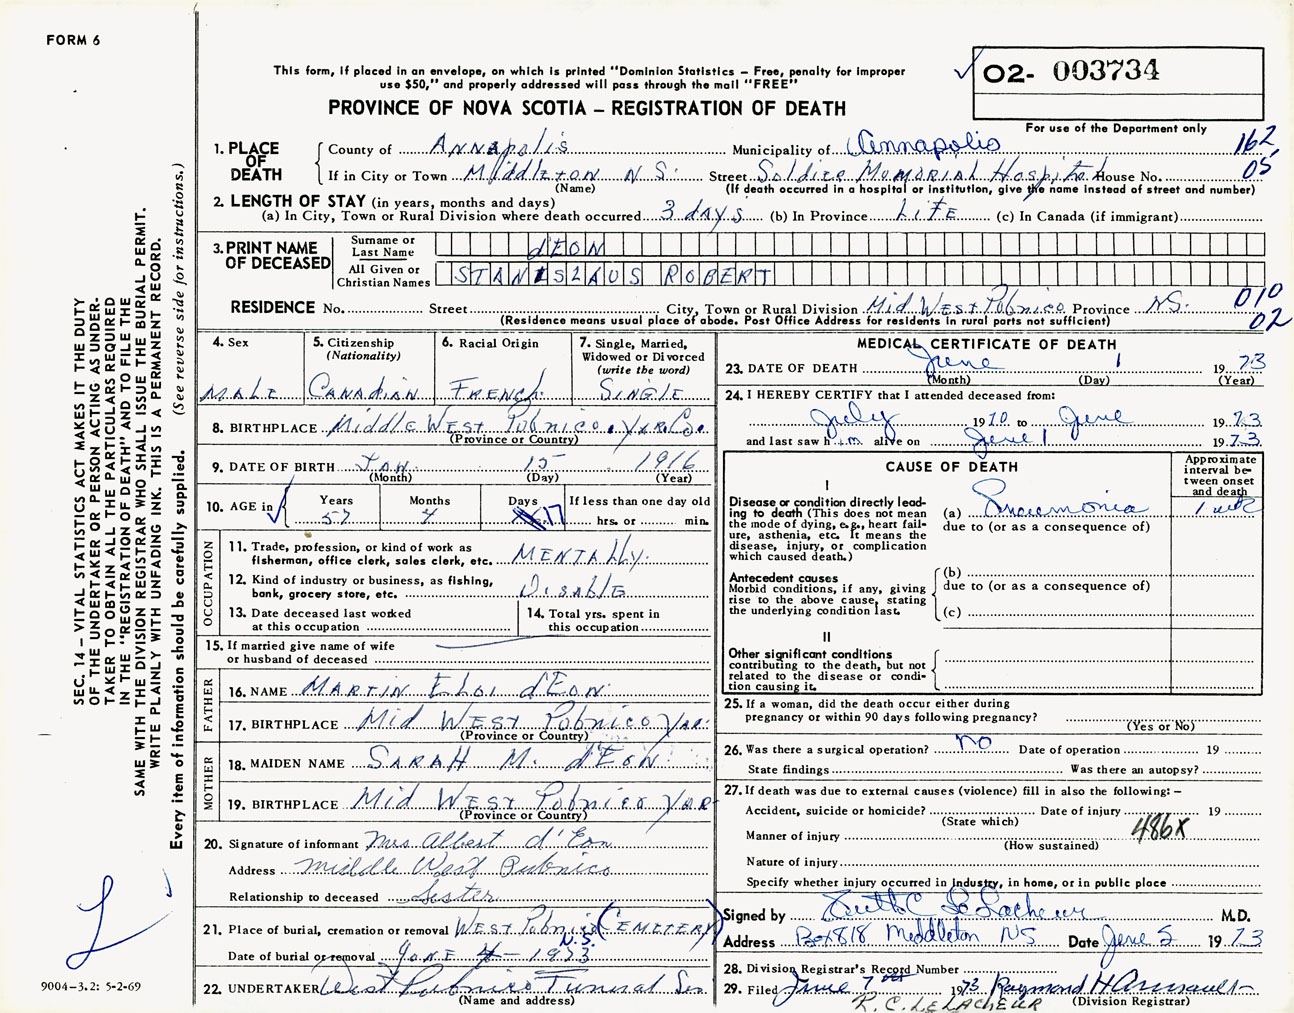 FORM 6
This form, if placed in an envelope, on which is printed "Dominion Statistics – Free, penalty for improper
use $50," and properly addressed will pass through the mail "FREE"
PROVINCE OF NOVA SCOTIA – REGISTRATION OF DEATH
O2- 003734
For use of the Department only
1. PLACE OF DEATH
County of Annapolis Municipality of Annapolis 162
If in City or Town Middleton N S. Street Soldier Memorial Hospital House No. 05
(Name) (If death occurred in a hospital or institution, give the name instead of street and number)
2. LENGTH OF STAY (in years, months and days)
(a) In City, Town or Rural Division where death occurred 3 days (b) In Province LIFE (c) In Canada (if immigrant)
3. PRINT NAME OF DECEASED
Surname or Last Name dEON
All Given or Christian Names STANISLAUS ROBERT
RESIDENCE No. Street City, Town or Rural Division Mid West Pubnico Province NS. 010
(Residence means usual place of abode. Post Office Address for residents in rural parts not sufficient) 02
4. Sex MALE
5. Citizenship (Nationality) CANADIAN
6. Racial Origin FRENCH
7. Single, Married, Widowed or Divorced (write the word) SINGLE
8. BIRTHPLACE Middle West Pubnico. Yar. Co.
(Province or Country)
9. DATE OF BIRTH JAN 15 1916
(Month) (Day) (Year)
10. AGE in Years 57 Months 4 Days 17 If less than one day old hrs. or min.
OCCUPATION
11. Trade, profession, or kind of work as fisherman, office clerk, sales clerk, etc. MENTALLY
12. Kind of industry or business, as fishing, bank, grocery store, etc. DISABLE
13. Date deceased last worked at this occupation
14. Total yrs. spent in this occupation
15. If married give name of wife or husband of deceased
FATHER
16. NAME MARTIN ELOI d'EON
17. BIRTHPLACE Mid West Pubnico Yar.
(Province or Country)
MOTHER
18. MAIDEN NAME SARAH M. d'EON
19. BIRTHPLACE Mid West Pubnico Yar
(Province or Country)
20. Signature of informant Mrs Albert d'Eon
Address Middle West Pubnico
Relationship to deceased Sister
21. Place of burial, cremation or removal West Pubnico (CEMETERY)
N.S.
Date of burial or removal JUNE 4 – 1973
22. UNDERTAKER West Pubnico Funeral Ser
(Name and address)
MEDICAL CERTIFICATE OF DEATH
23. DATE OF DEATH June 1 1973
(Month) (Day) (Year)
24. I HEREBY CERTIFY that I attended deceased from:
July 1970 to June 1973
and last saw him alive on June 1 1973
CAUSE OF DEATH
Approximate interval between onset and death
I
Disease or condition directly leading to death (This does not mean the mode of dying, e.g., heart failure, asthenia, etc. It means the disease, injury, or complication which caused death.)
(a) Pneumonia 1 wk
due to (or as a consequence of)
Antecedent causes
Morbid conditions, if any, giving rise to the above cause, stating the underlying condition last.
(b)
due to (or as a consequence of)
(c)
II
Other significant conditions
contributing to the death, but not related to the disease or condition causing it.
25. If a woman, did the death occur either during pregnancy or within 90 days following pregnancy?
(Yes or No)
26. Was there a surgical operation? no Date of operation 19
State findings Was there an autopsy?
27. If death was due to external causes (violence) fill in also the following: –
Accident, suicide or homicide? Date of injury 19
(State which)
Manner of injury 486X
(How sustained)
Nature of injury
Specify whether injury occurred in industry, in home, or in public place
Signed by C LeLacheur M.D.
Address Box 818 Middleton NS Date June 5 1973
28. Division Registrar's Record Number
29. Filed June 7 1973 Raymond H
R. C. LELACHEUR (Division Registrar)
SEC. 14 – VITAL STATISTICS ACT MAKES IT THE DUTY
OF THE UNDERTAKER OR PERSON ACTING AS UNDER-
TAKER TO OBTAIN ALL THE PARTICULARS REQUIRED
IN THE "REGISTRATION OF DEATH" AND TO FILE THE
SAME WITH THE DIVISION REGISTRAR WHO SHALL ISSUE THE BURIAL PERMIT.
WRITE PLAINLY WITH UNFADING INK. THIS IS A PERMANENT RECORD.
Every item of information should be carefully supplied. (See reverse side for instructions.)
9004-3.2: 5-2-69